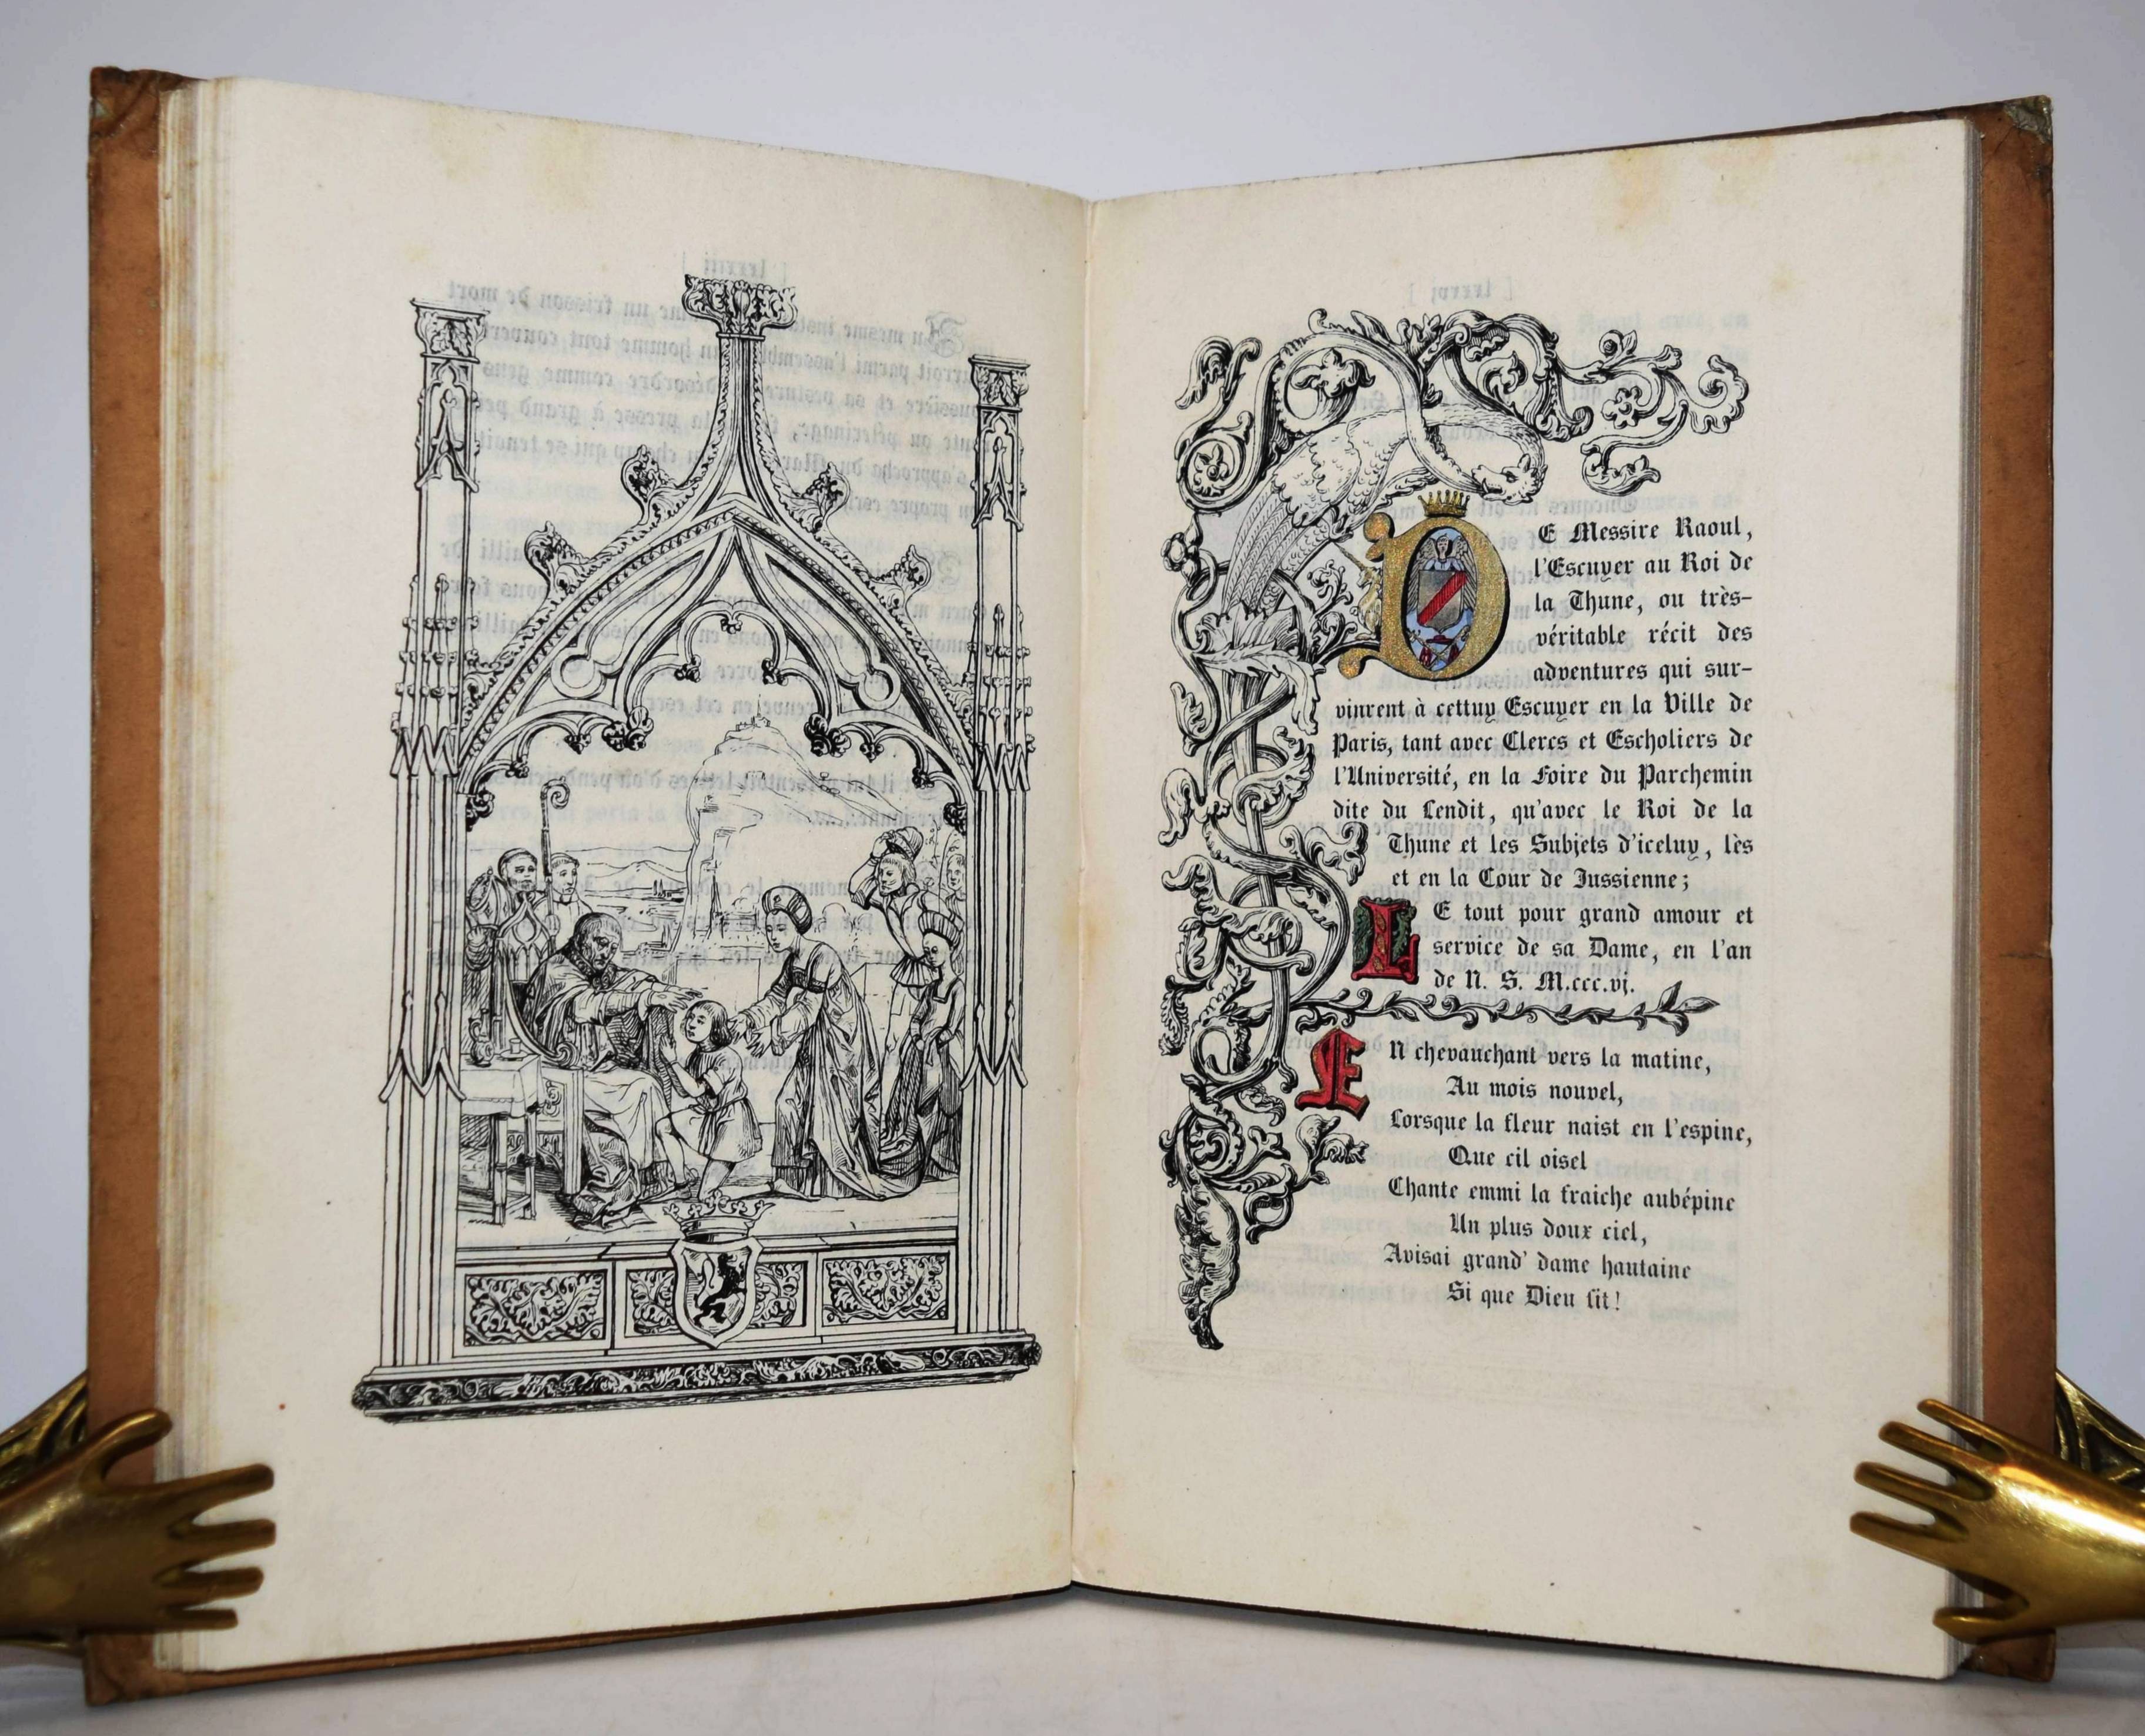 DE Messire Raoul,
l'Escuyer au Roi de
la Thune, ou très-
véritable récit des
adventures qui sur-
vinrent à cettuy Escuyer en la Ville de
Paris, tant avec Clercs et Escholiers de
l'Université, en la Foire du Parchemin
dite du Lendit, qu'avec le Roi de la
Thune et les Subjets d'iceluy, lès
et en la Cour de Jussienne;
LE tout pour grand amour et
service de sa Dame, en l'an
de N. S. M.ccc.vj.
EN chevauchant vers la matine,
Au mois nouvel,
Lorsque la fleur naist en l'espine,
Que cil oisel
Chante emmi la fraiche aubépine
Un plus doux ciel,
Avisai grand' dame hautaine
Si que Dieu fit!